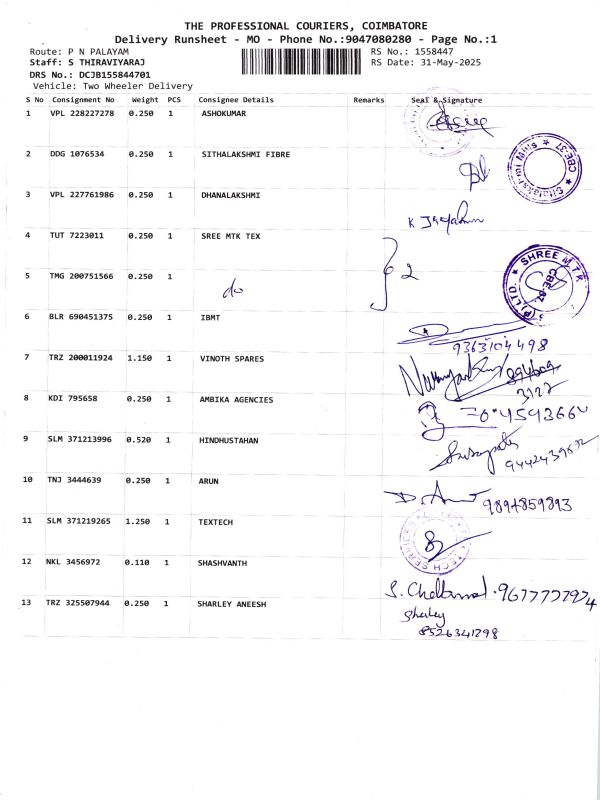 THE PROFESSIONAL COURIERS, COIMBATORE
Delivery Runsheet - MO - Phone No.:9047080280 - Page No.:1
Route: P N PALAYAM
RS No.: 1558447
Staff: S THIRAVIYARAJ
RS Date: 31-May-2025
DRS No.: DCJB155844701
Vehicle: Two Wheeler Delivery
S No Consignment No Weight PCS Consignee Details Remarks Seal & Signature
1 VPL 228227278 0.250 1 ASHOKUMAR
2 DDG 1076534 0.250 1 SITHALAKSHMI FIBRE
CBE-37
3 VPL 227761986 0.250 1 DHANALAKSHMI
4 TUT 7223011 0.250 1 SREE MTK TEX
2
SHREE M.T.K.
CBE-37
(P) LTD.
5 TMG 200751566 0.250 1 do
6 BLR 690451375 0.250 1 IBMT
9363104498
7 TRZ 200011924 1.150 1 VINOTH SPARES
3122
8 KDI 795658 0.250 1 AMBIKA AGENCIES
9 SLM 371213996 0.520 1 HINDHUSTAHAN
10 TNJ 3444639 0.250 1 ARUN
9894859893
11 SLM 371219265 1.250 1 TEXTECH
12 NKL 3456972 0.110 1 SHASHVANTH
13 TRZ 325507944 0.250 1 SHARLEY ANEESH
Sharley
8526341298